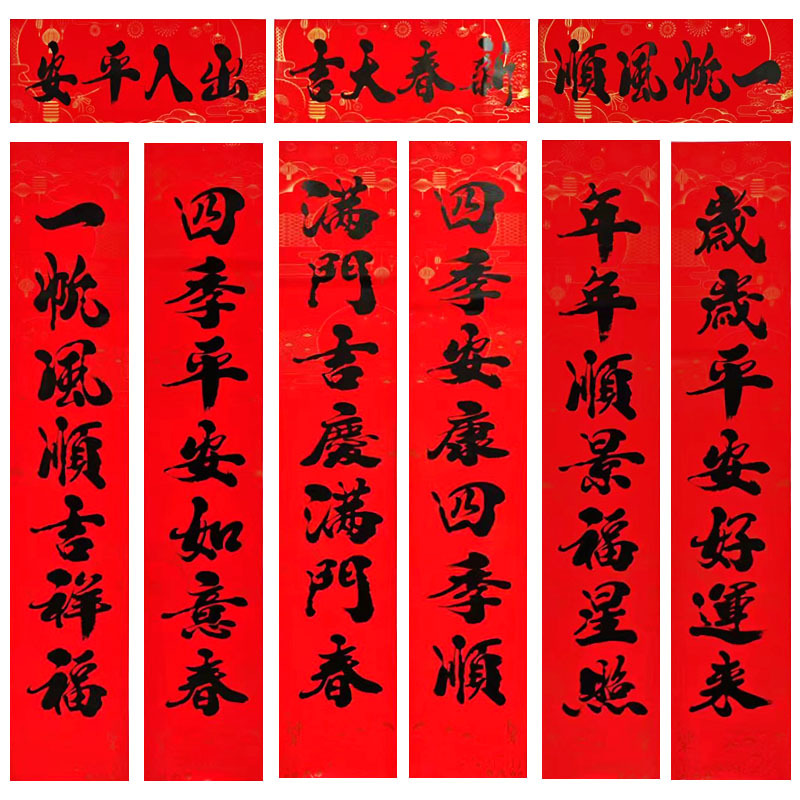 一帆風順
新春天吉
出入平安
歲歲平安好運来
年年順景福星照
四季安康四季順
满門吉慶满門春
四季平安如意春
一帆風順吉祥福